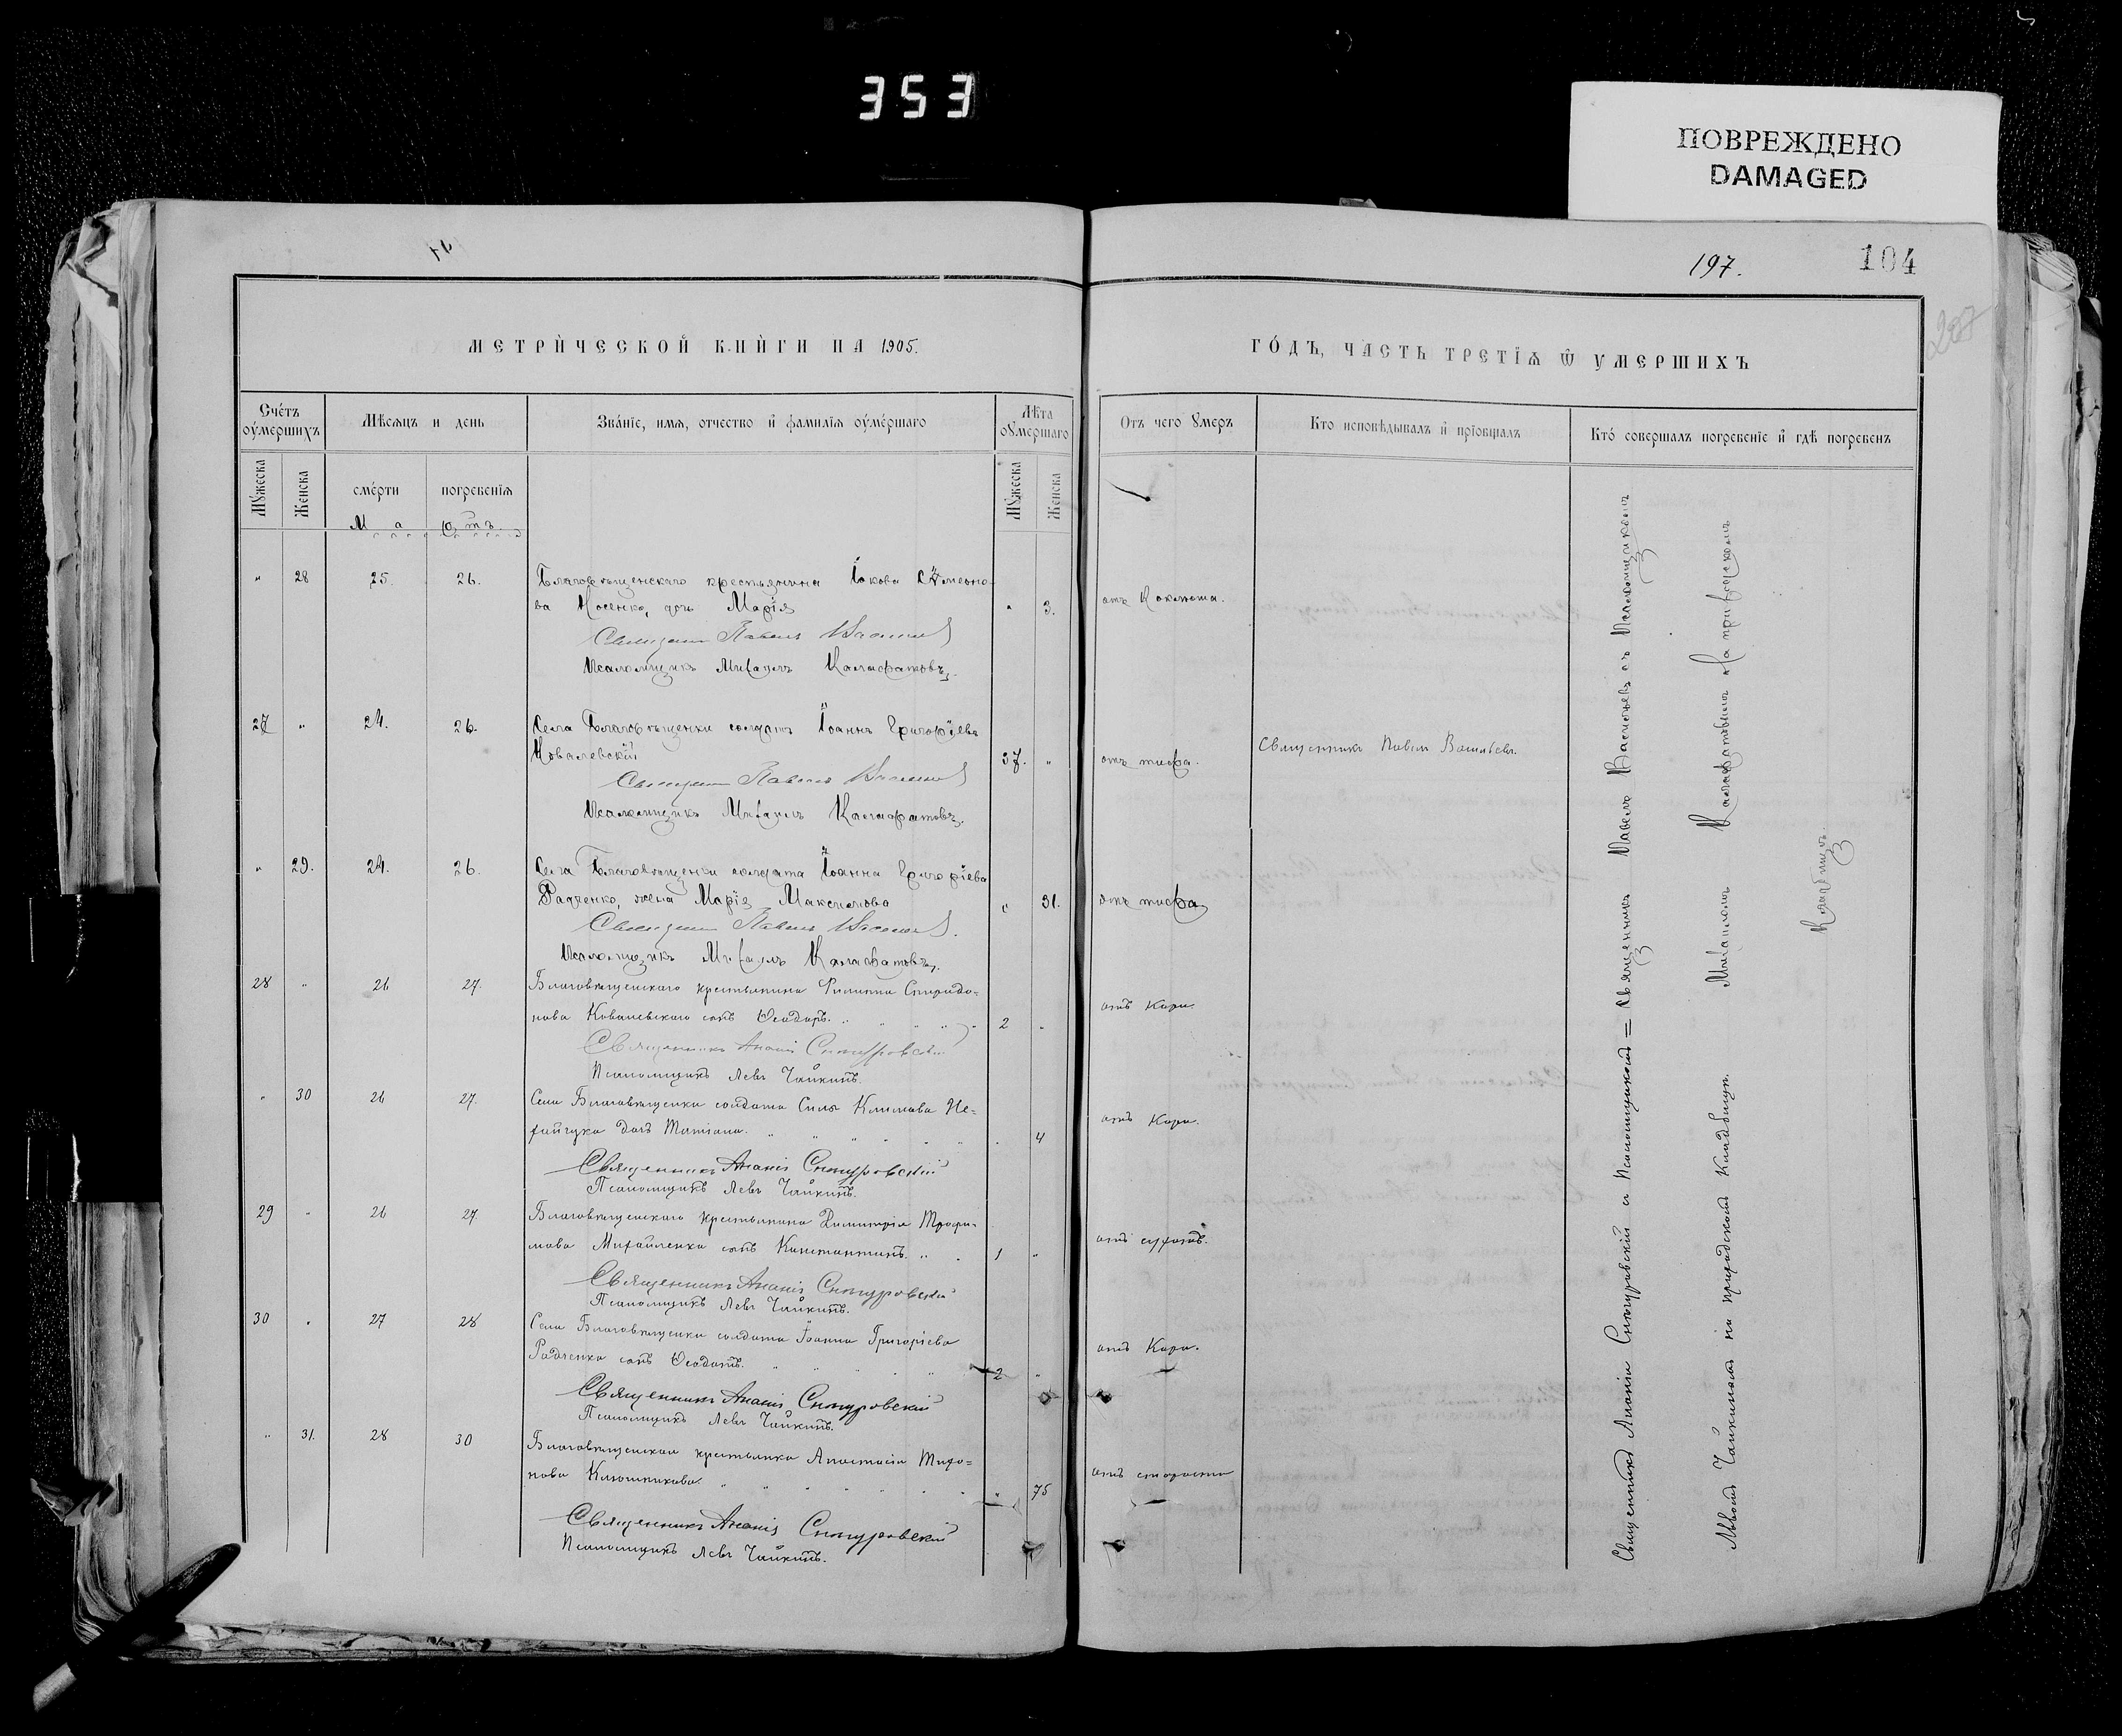 353
ПОВРЕЖДЕНО
DAMAGED
197.
104
МЕТРИ́ЧЕСКОЙ КНИ́ГИ НА 1905.
ГО́ДЪ, ЧАСТЬ ТРЕТІѦ Ѿ УМЕРШИХЪ
Сче́тъ оумершихъ
Мѣсяцъ и день
Зва́ніе, имя, отчество и фамилія оуме́ршаго
Лѣта оумершаго
Отъ чего умеръ
Кто исповѣдывалъ и пріобщалъ
Кто́ совершалъ погребеніе и гдѣ погребенъ
Мужеска
Женска
сме́рти
погребенія
Мужеска
Женска
Мартъ
" 28 25. 26. Благовѣщенскаго крестьянина Іакова Сѵмеоно-
ва Носенко, дочь Марія " 3. отъ коклюша.
Священникъ Павелъ Васильевъ
Псаломщикъ Михаилъ Калафатовъ.
27 " 24. 26. Села Благовѣщенки солдатъ Іоаннъ Григоріевъ
Ковалевскій 37. " отъ тифа. Священникъ Павелъ Васильевъ.
Священникъ Павелъ Васильевъ
Псаломщикъ Михаилъ Калафатовъ.
" 29. 24. 26. Села Благовѣщенки солдата Іоанна Григоріева
Радченко, жена Марія Максимова " 31. отъ тифа.
Священникъ Павелъ Васильевъ.
Псаломщикъ Михаилъ Калафатовъ.
28 " 26 27. Благовѣщенскаго крестьянина Филиппа Спиридо=
нова Ковалевскаго сынъ Ѳеодоръ. 2 " отъ Кори.
Священникъ Ананій Снигуровскій
Псаломщикъ Левъ Чайкинъ.
" 30 26 27. Села Благовѣщенки солдата Силы Климова
дочь Татіана. " 4 отъ Кори.
Священникъ Ананій Снигуровскій
Псаломщикъ Левъ Чайкинъ.
29 " 26 27. Благовѣщенскаго крестьянина Димитрія Трофи-
мова Михайленка сынъ Константинъ. 1 " отъ
Священникъ Ананій Снигуровскій
Псаломщикъ Левъ Чайкинъ.
30 " 27 28 Села Благовѣщенки солдата Іоанна Григоріева
Радченка сынъ Ѳеодотъ. 2 " отъ Кори.
Священникъ Ананій Снигуровскій
Псаломщикъ Левъ Чайкинъ.
" 31. 28 30 Благовѣщенская крестьянка Анастасія
Ключникова. " 75 отъ старости
Священникъ Ананій Снигуровскій
Псаломщикъ Левъ Чайкинъ.
Священникъ Ананій Снигуровскій съ Псаломщикомъ = Священникъ Павелъ Васильевъ съ Псаломщикомъ
Львомъ Чайкинымъ на приходскомъ кладбищѣ. Михаиломъ Калафатовымъ на приходскомъ
кладбищѣ